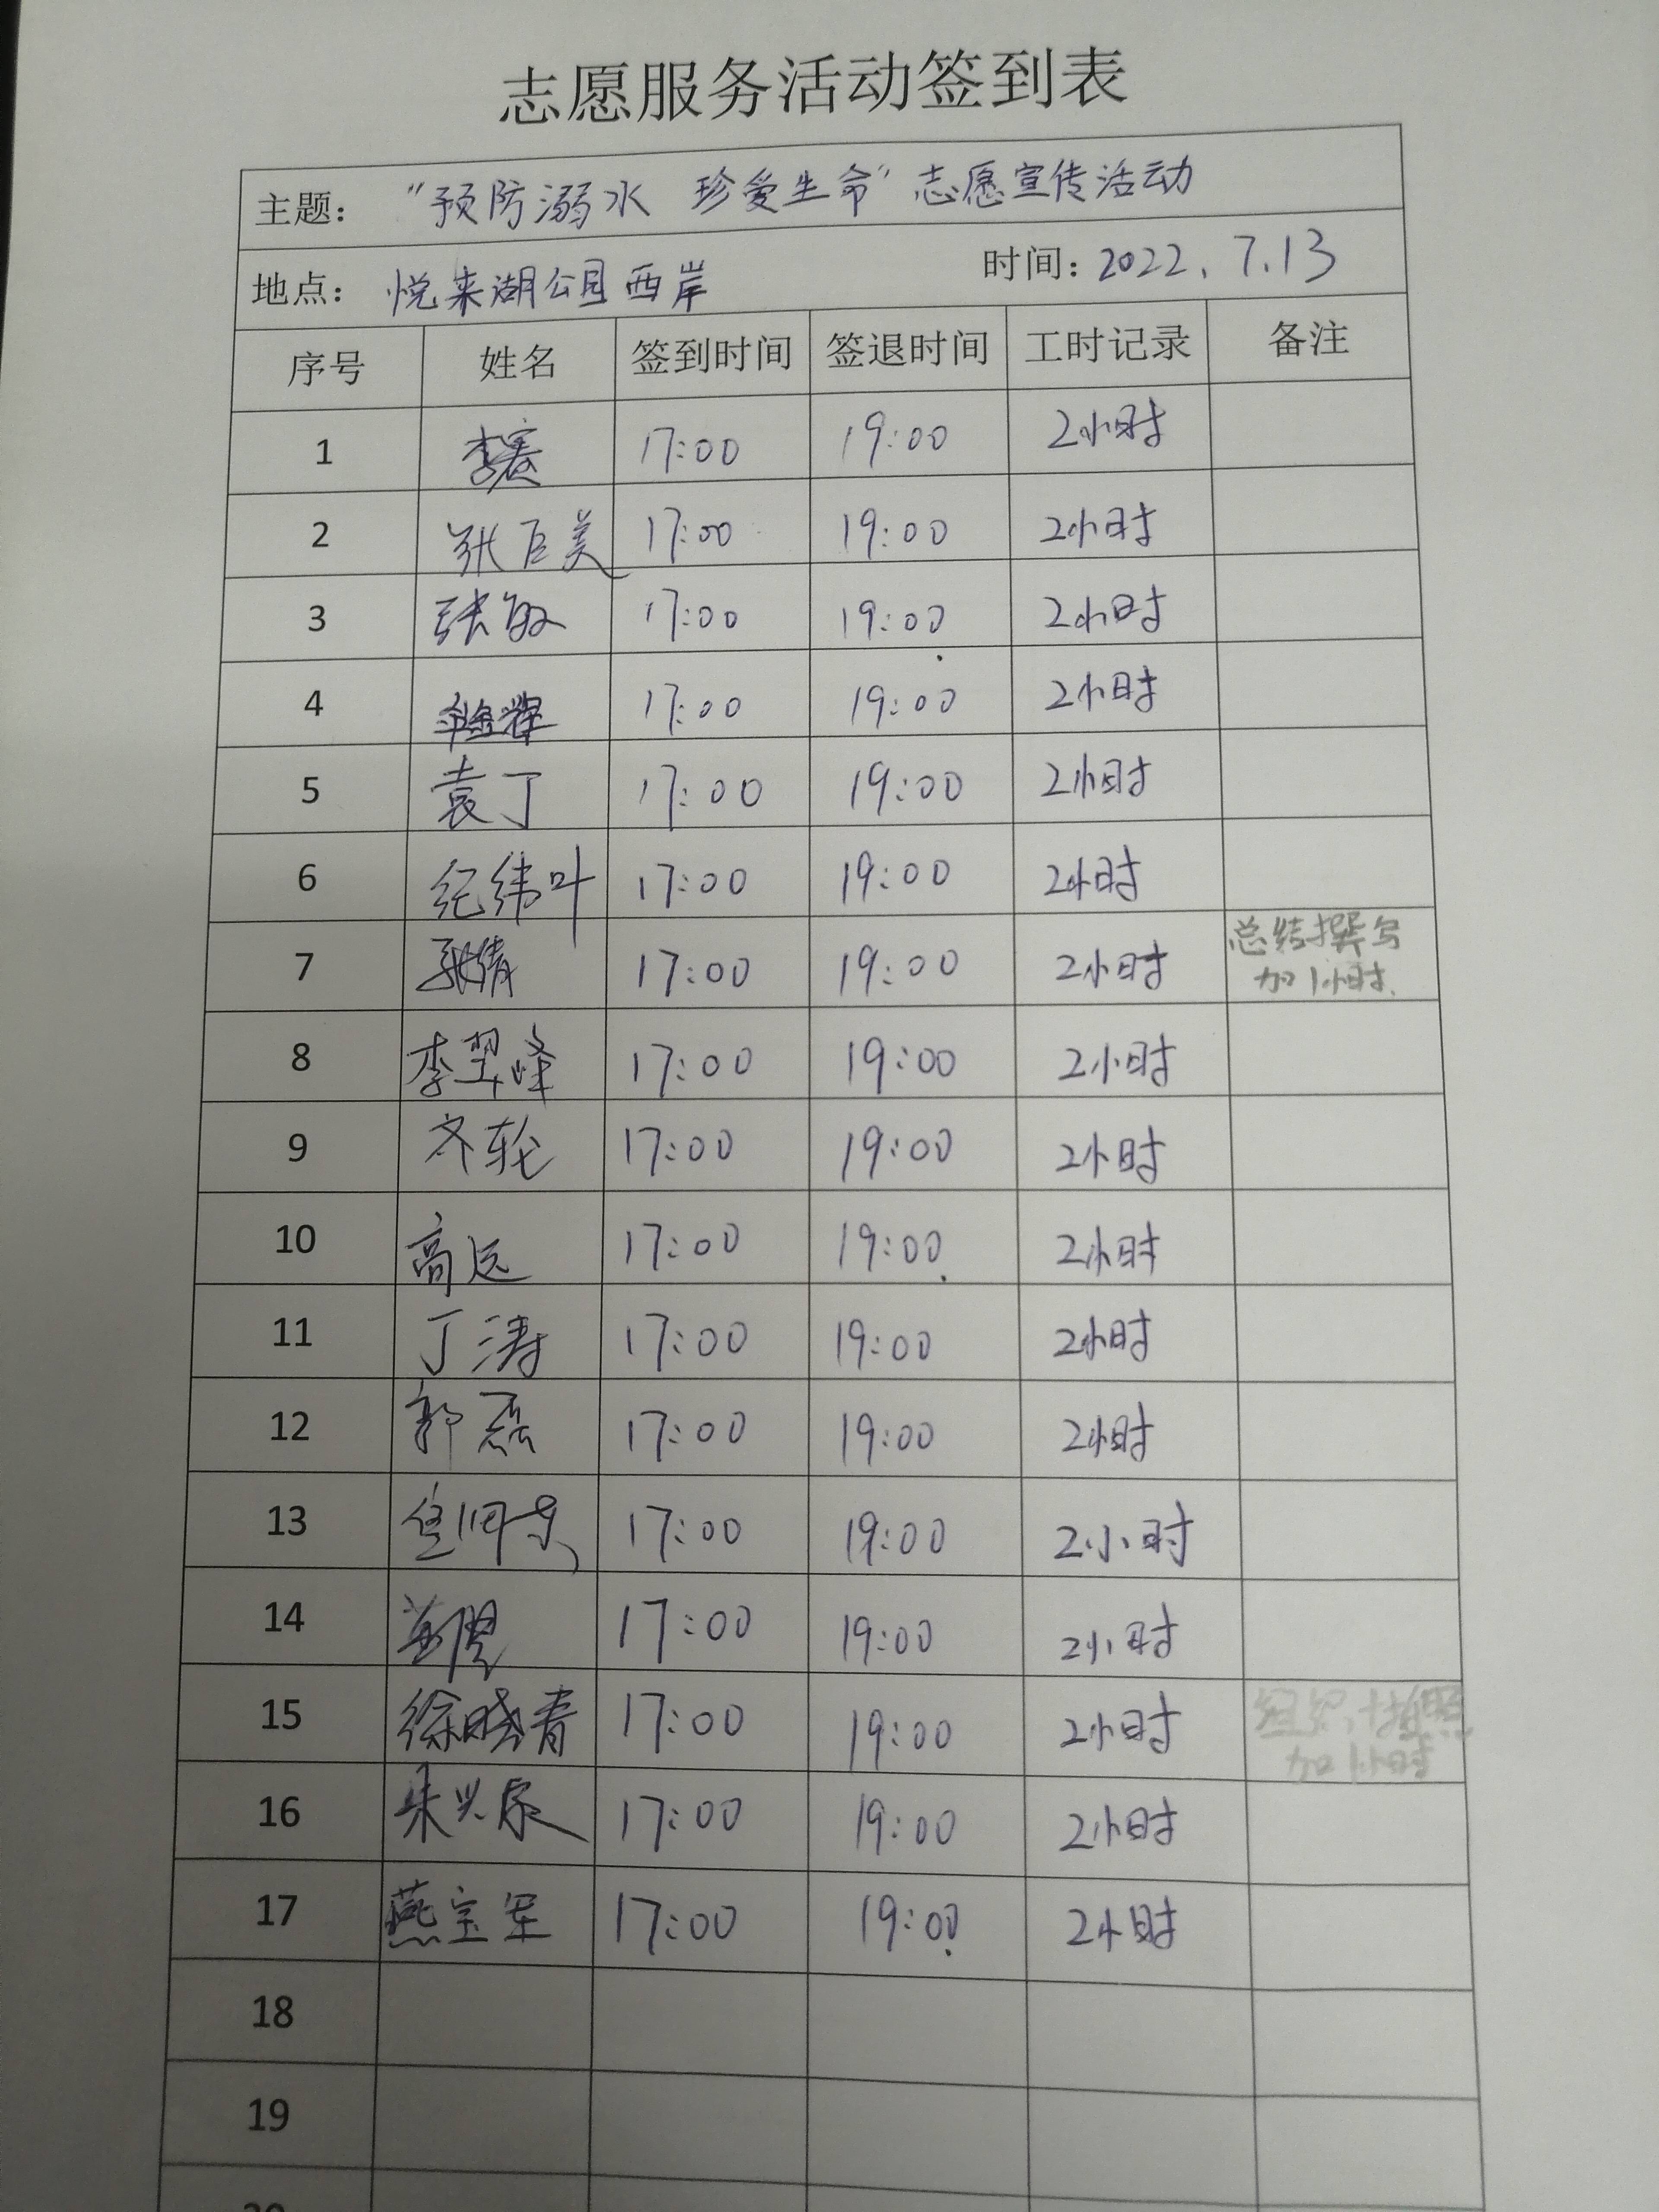 志愿服务活动签到表
主题： “预防溺水 珍爱生命”志愿宣传活动
地点： 悦来湖公园西岸 时间：2022.7.13
序号 姓名 签到时间 签退时间 工时记录 备注
1 17:00 19:00 2小时
2 张巨美 17:00 19:00 2小时
3 张敏 17:00 19:00 2小时
4 17:00 19:00 2小时
5 袁丁 17:00 19:00 2小时
6 纪纬叶 17:00 19:00 2小时
7 张倩 17:00 19:00 2小时 总结撰写
加1小时.
8 李翠峰 17:00 19:00 2小时
9 齐轮 17:00 19:00 2小时
10 高远 17:00 19:00 2小时
11 丁涛 17:00 19:00 2小时
12 郭磊 17:00 19:00 2小时
13 17:00 19:00 2小时
14 17:00 19:00 2小时
15 徐晓青 17:00 19:00 2小时 组织、拍照
加1小时
16 朱兴泉 17:00 19:00 2小时
17 燕宝军 17:00 19:00 2小时
18
19
20